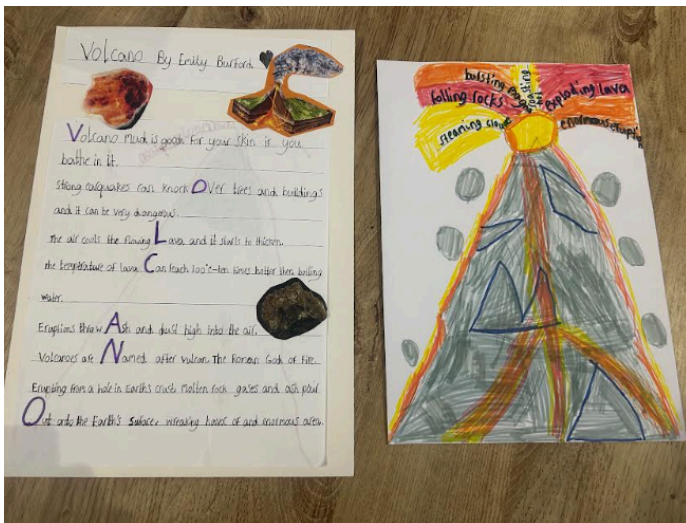 Volcano By Emily Burford
Volcano mud is good for your skin if you
bathe in it.
Strong earquakes can knock Over trees and buildings
and it can be very drangerous.
The air cools the flowing Lava and it starts to thicken.
the temptrature of lava Can reach 100°c-ten times hotter then boiling
water.
Eruptions throw Ash and dust high into the air.
Volcanoes are Named after vulcan The Roman God of Fire.
Erupting from a hole in Earths crust Molten rock gases and ash pour
Out onto the Earth's Surface wreaking havoc of and enormous area.
steaming
falling rocks
busting
exploding lava
enormous eruption